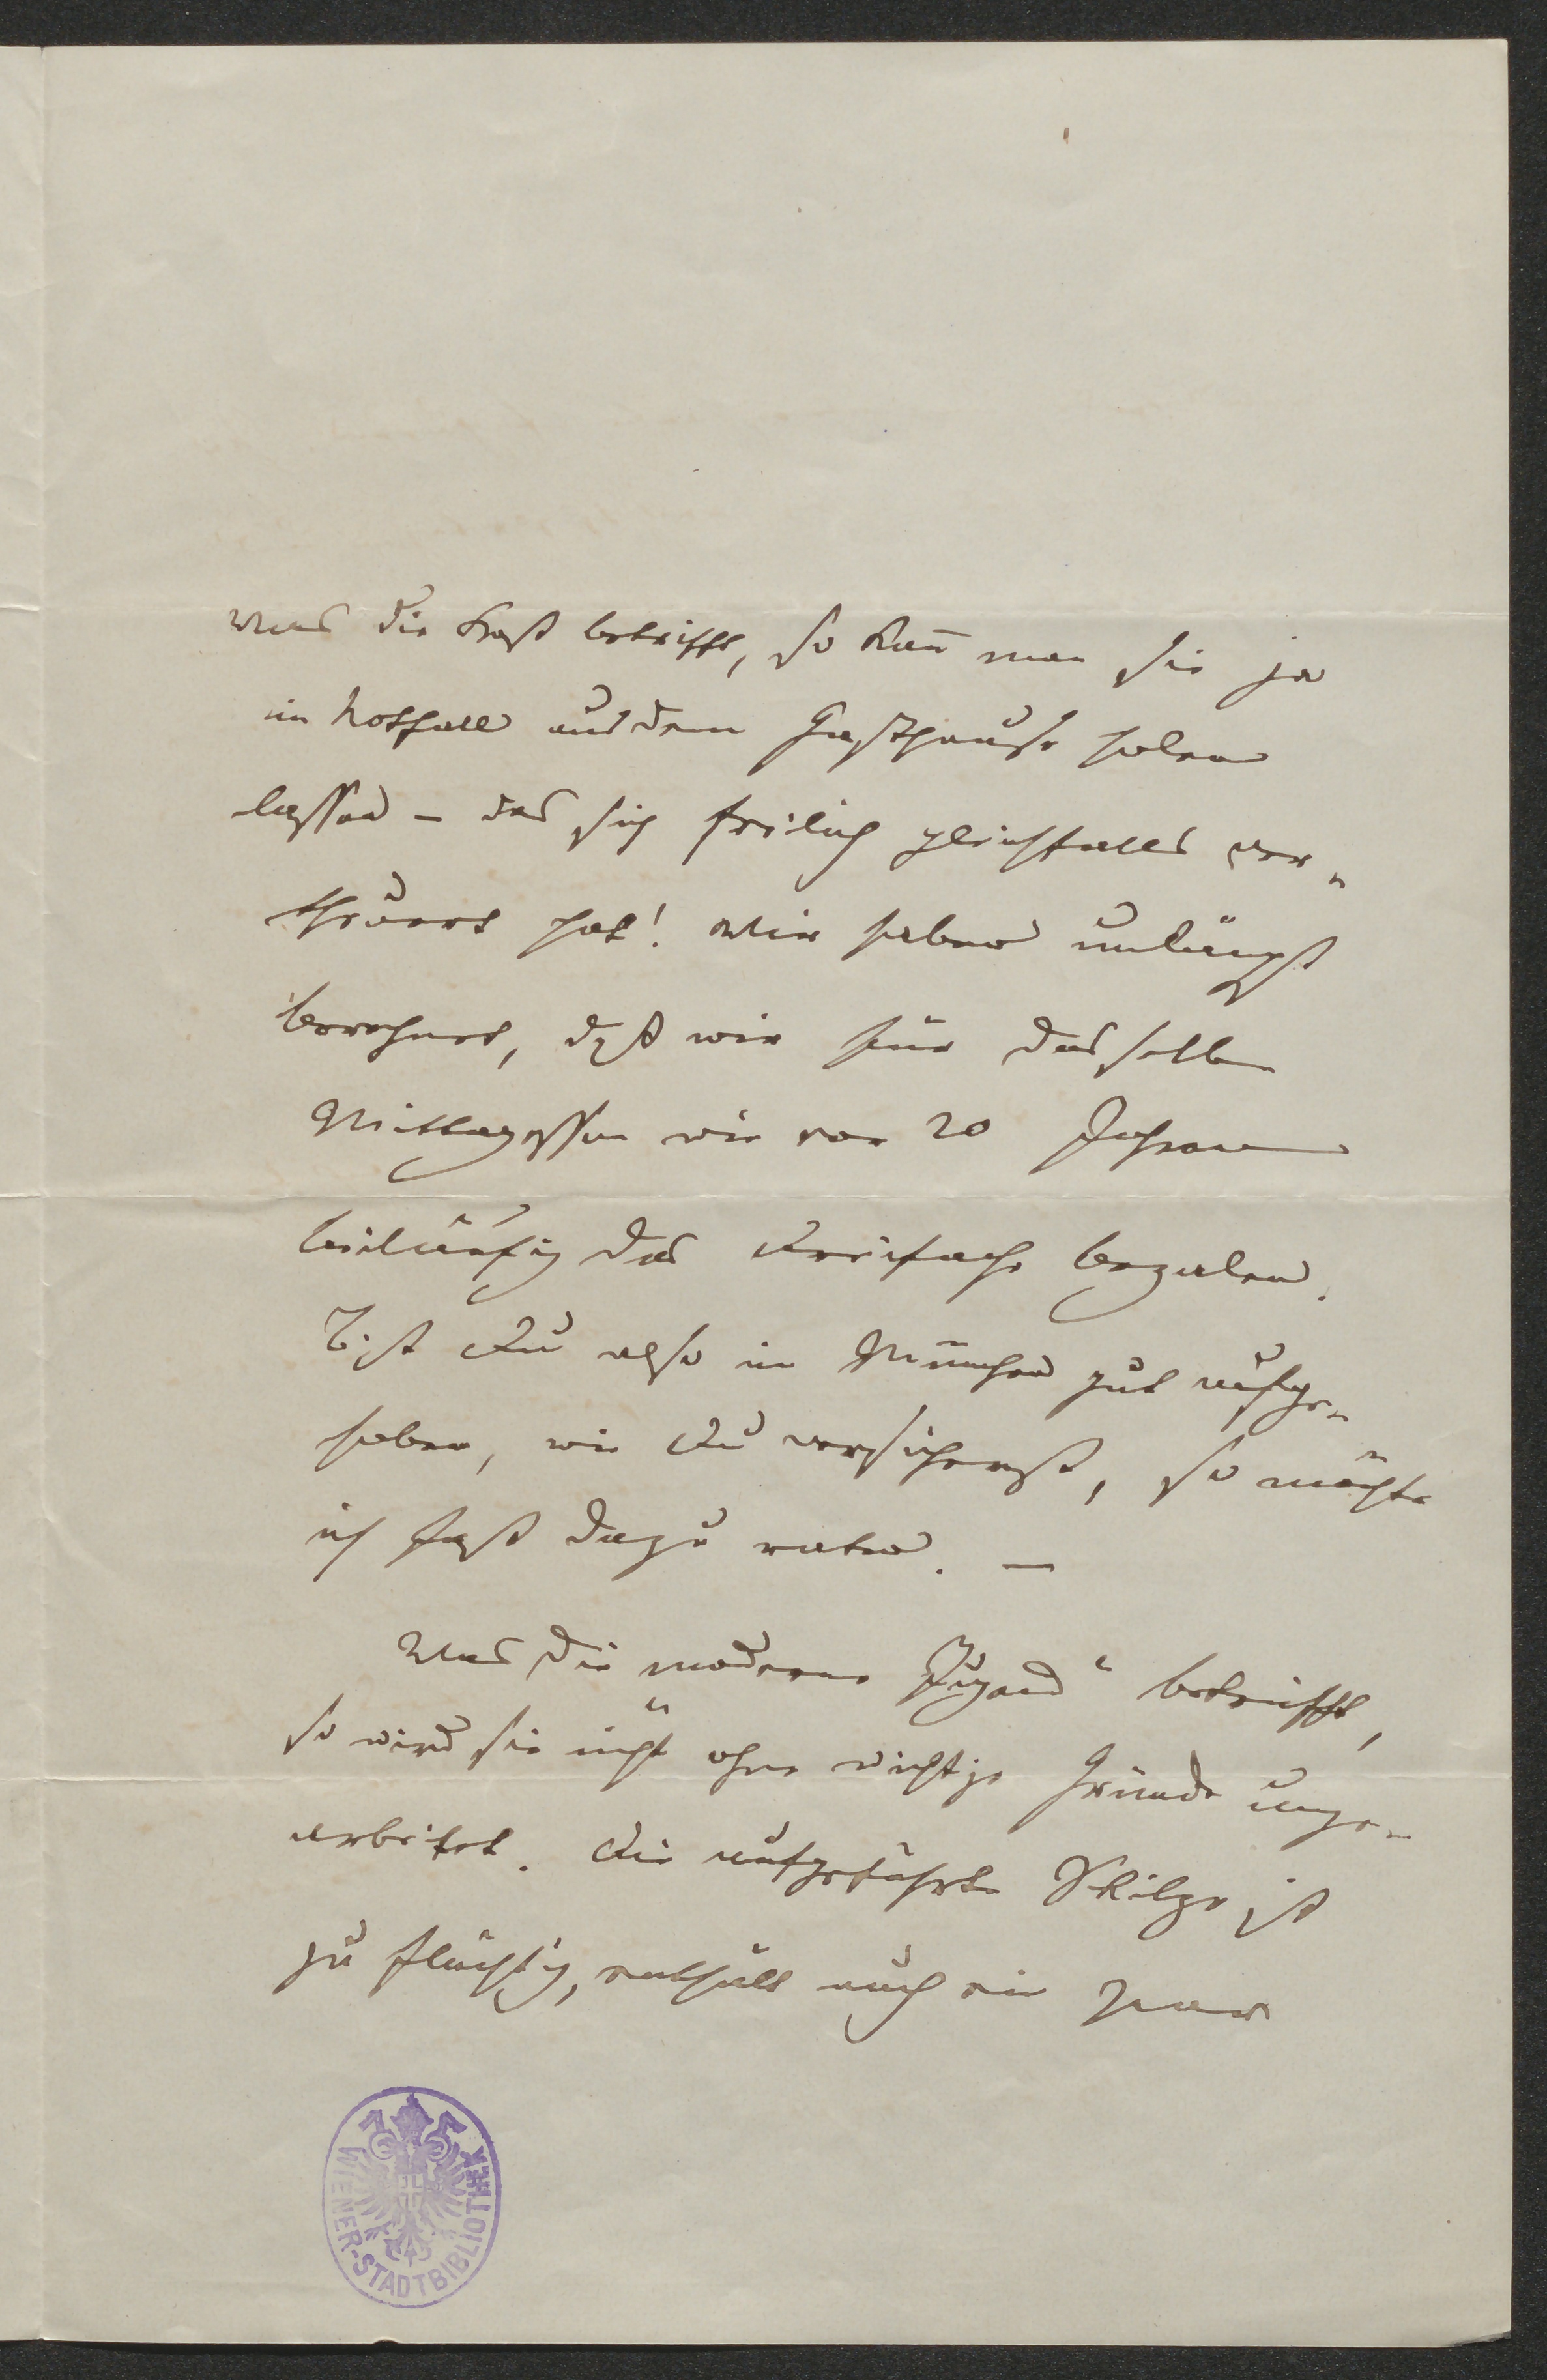 was die Kost betrifft, so kan̄ man sie ja
im Notfall aus dem Gasthause holen
lassen – das sich freilich gleichfalls ver„
theuert hat! Wir haben unlängst
berechnet, daß wir für dasselbe
Mittagessen wie vor 20 Jahren
beiläufig das Dreifache bezalen.
Bist Du also in München gut aufge„
hoben, wie Du versicherst, so möchte
ich fast dazu raten. –
Was die moderne Jugend“ betrifft,
so wird sie nicht ohne wichtige Gründe umge„
arbeitet. Die aufgeführte Skitze ist
zu flüchtig, enthält auch ein paar
WIENER-STADTBIBLIOTHEK